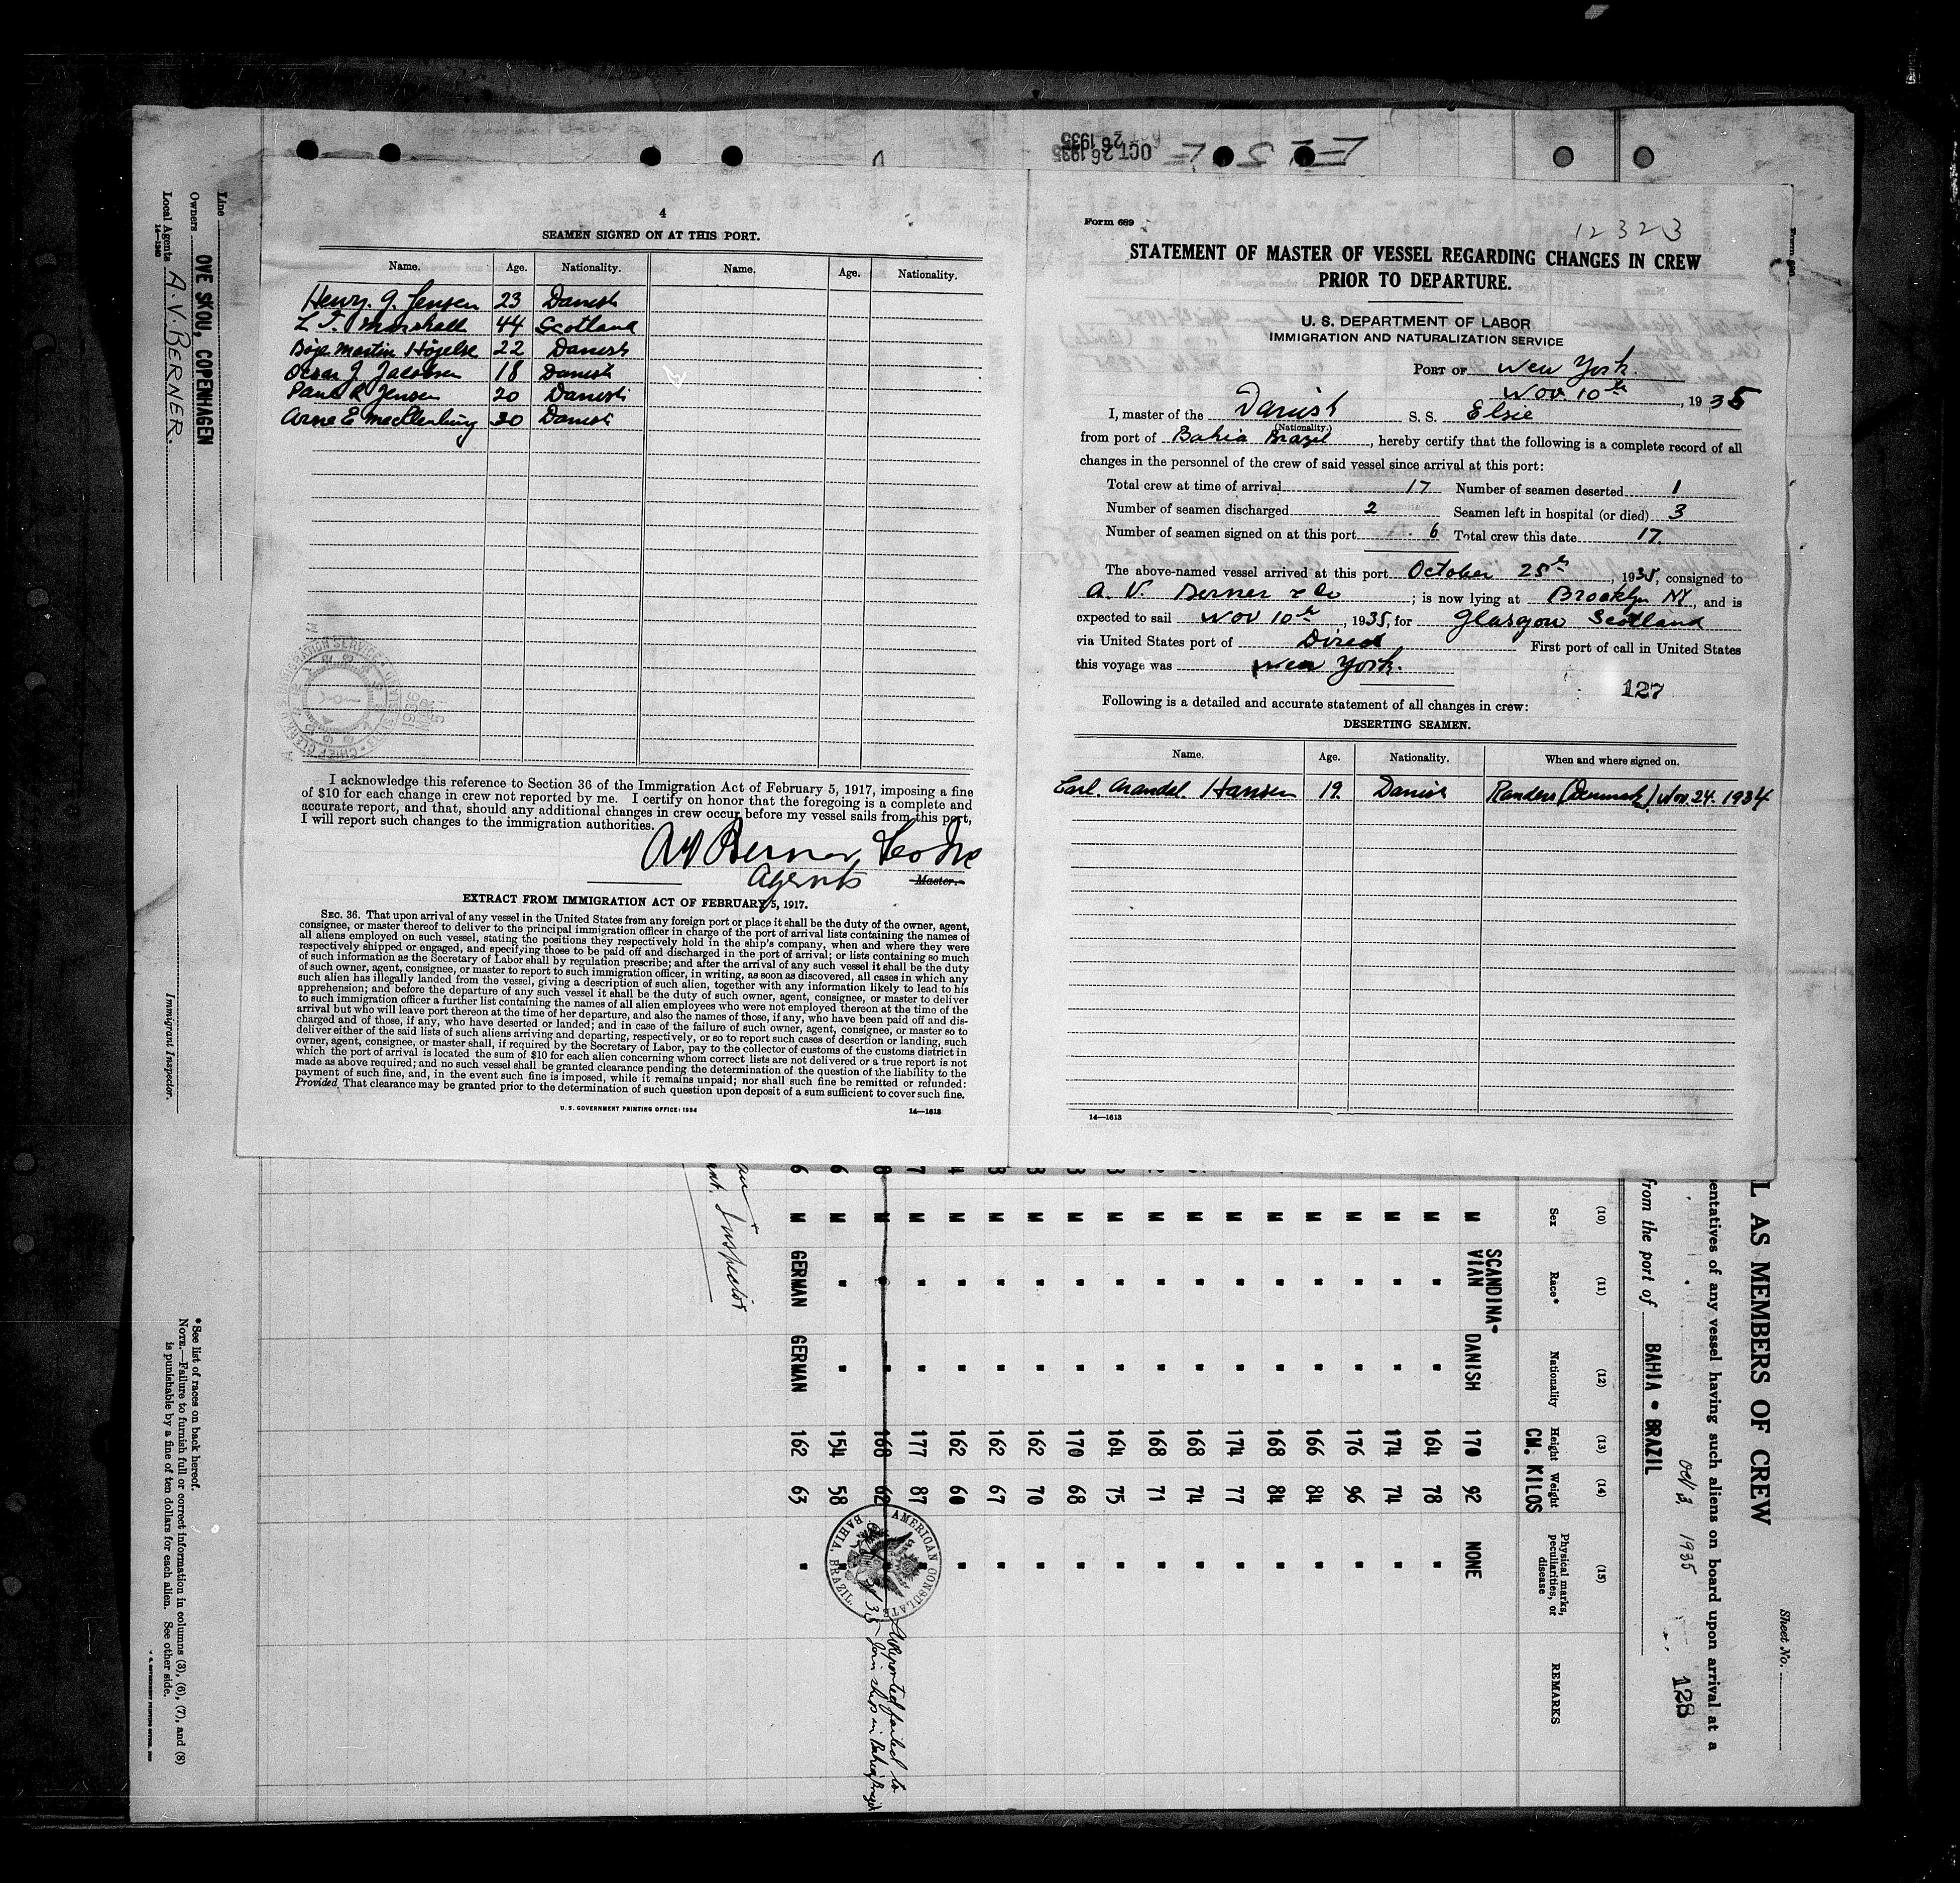 4
SEAMEN SIGNED ON AT THIS PORT.
Name. Age. Nationality. Name. Age. Nationality.
Henry. J. Jensen 23 Danish
L T. Marshall 44 Scotland
Martin 22 Danish
J Jacobsen 18 Danish
Paul R Jensen 20 Danish
Arne E Mecklenburg 30 Danish
I acknowledge this reference to Section 36 of the Immigration Act of February 5, 1917, imposing a fine
of $10 for each change in crew not reported by me. I certify on honor that the foregoing is a complete and
accurate report, and that, should any additional changes in crew occur before my vessel sails from this port,
I will report such changes to the immigration authorities.
AV Berner, Co Inc
Agents Master.
EXTRACT FROM IMMIGRATION ACT OF FEBRUARY 5, 1917.
SEC. 36. That upon arrival of any vessel in the United States from any foreign port or place it shall be the duty of the owner, agent,
consignee, or master thereof to deliver to the principal immigration officer in charge of the port of arrival lists containing the names of
all aliens employed on such vessel, stating the positions they respectively hold in the ship's company, when and where they were
respectively shipped or engaged, and specifying those to be paid off and discharged in the port of arrival; or lists containing so much
of such information as the Secretary of Labor shall by regulation prescribe; and after the arrival of any such vessel it shall be the duty
of such owner, agent, consignee, or master to report to such immigration officer, in writing, as soon as discovered, all cases in which any
such alien has illegally landed from the vessel, giving a description of such alien, together with any information likely to lead to his
apprehension; and before the departure of any such vessel it shall be the duty of such owner, agent, consignee, or master to deliver
to such immigration officer a further list containing the names of all alien employees who were not employed thereon at the time of the
arrival but who will leave port thereon at the time of her departure, and also the names of those, if any, who have been paid off and dis-
charged and of those, if any, who have deserted or landed; and in case of the failure of such owner, agent, consignee, or master so to
deliver either of the said lists of such aliens arriving and departing, respectively, or so to report such cases of desertion or landing, such
owner, agent, consignee, or master shall, if required by the Secretary of Labor, pay to the collector of customs of the customs district in
which the port of arrival is located the sum of $10 for each alien concerning whom correct lists are not delivered or a true report is not
made as above required; and no such vessel shall be granted clearance pending the determination of the question of the liability to the
payment of such fine, and, in the event such fine is imposed, while it remains unpaid; nor shall such fine be remitted or refunded:
Provided, That clearance may be granted prior to the determination of such question upon deposit of a sum sufficient to cover such fine.
U. S. GOVERNMENT PRINTING OFFICE: 1934 14—1613
Form 689
12323
STATEMENT OF MASTER OF VESSEL REGARDING CHANGES IN CREW
PRIOR TO DEPARTURE.
U. S. DEPARTMENT OF LABOR
IMMIGRATION AND NATURALIZATION SERVICE
PORT OF New York.
Nov. 10th, 1935
I, master of the Danish S. S. Elsie
(Nationality.)
from port of Bahia Brazil, hereby certify that the following is a complete record of all
changes in the personnel of the crew of said vessel since arrival at this port:
Total crew at time of arrival 17 Number of seamen deserted 1
Number of seamen discharged 2 Seamen left in hospital (or died) 3
Number of seamen signed on at this port 6 Total crew this date 17.
The above-named vessel arrived at this port October 25th, 1935, consigned to
A. V. Berner & Co; is now lying at Brooklyn NY, and is
expected to sail Nov 10th, 1935, for Glasgow Scotland
via United States port of Direct First port of call in United States
this voyage was New York.
127
Following is a detailed and accurate statement of all changes in crew:
DESERTING SEAMEN.
Name. Age. Nationality. When and where signed on.
Carl. Hansen 19. Danish Randers (Denmark) Nov. 24. 1934
14—1613
OCT 26 1935
Line
Owners OVE SKOU, COPENHAGEN
Local Agents A. V. BERNER.
14—1240
Immigrant Inspector.
*See list of races on back hereof.
NOTE.—Failure to furnish full or correct information in columns (3), (6), (7), and (8)
is punishable by a fine of ten dollars for each alien. See other side.
Sheet No.
L AS MEMBERS OF CREW
entatives of any vessel having such aliens on board upon arrival at a
Oct 3, 1935 128
from the port of BAHIA - BRAZIL
(10) (11) (12) (13) (14) (15)
Sex Race* Nationality Height Weight Physical marks, peculiarities, or disease REMARKS
CM. KILOS
M SCANDINA-VIAN DANISH 170 92 NONE
M " " 164 78 "
M " " 174 74 "
M " " 176 96 "
M " " 166 84 "
M " " 168 84 "
M " " 174 77 "
M " " 168 74 "
M " " 168 71 "
M " " 164 75 "
M " " 170 68 "
M " " 162 70 "
M " " 162 67 "
M " " 162 60 "
M " " 177 87 "
M " " 168 62 " Reported failed to join ship in Bahia Brazil
M " " 154 58 "
M GERMAN GERMAN 162 63 "
Inspector
AMERICAN CONSULATE
BAHIA, BRAZIL